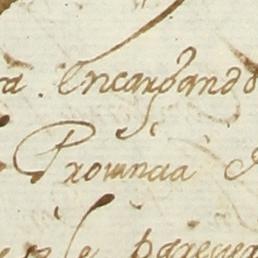 ra. encargando
Provincia d
le parecer